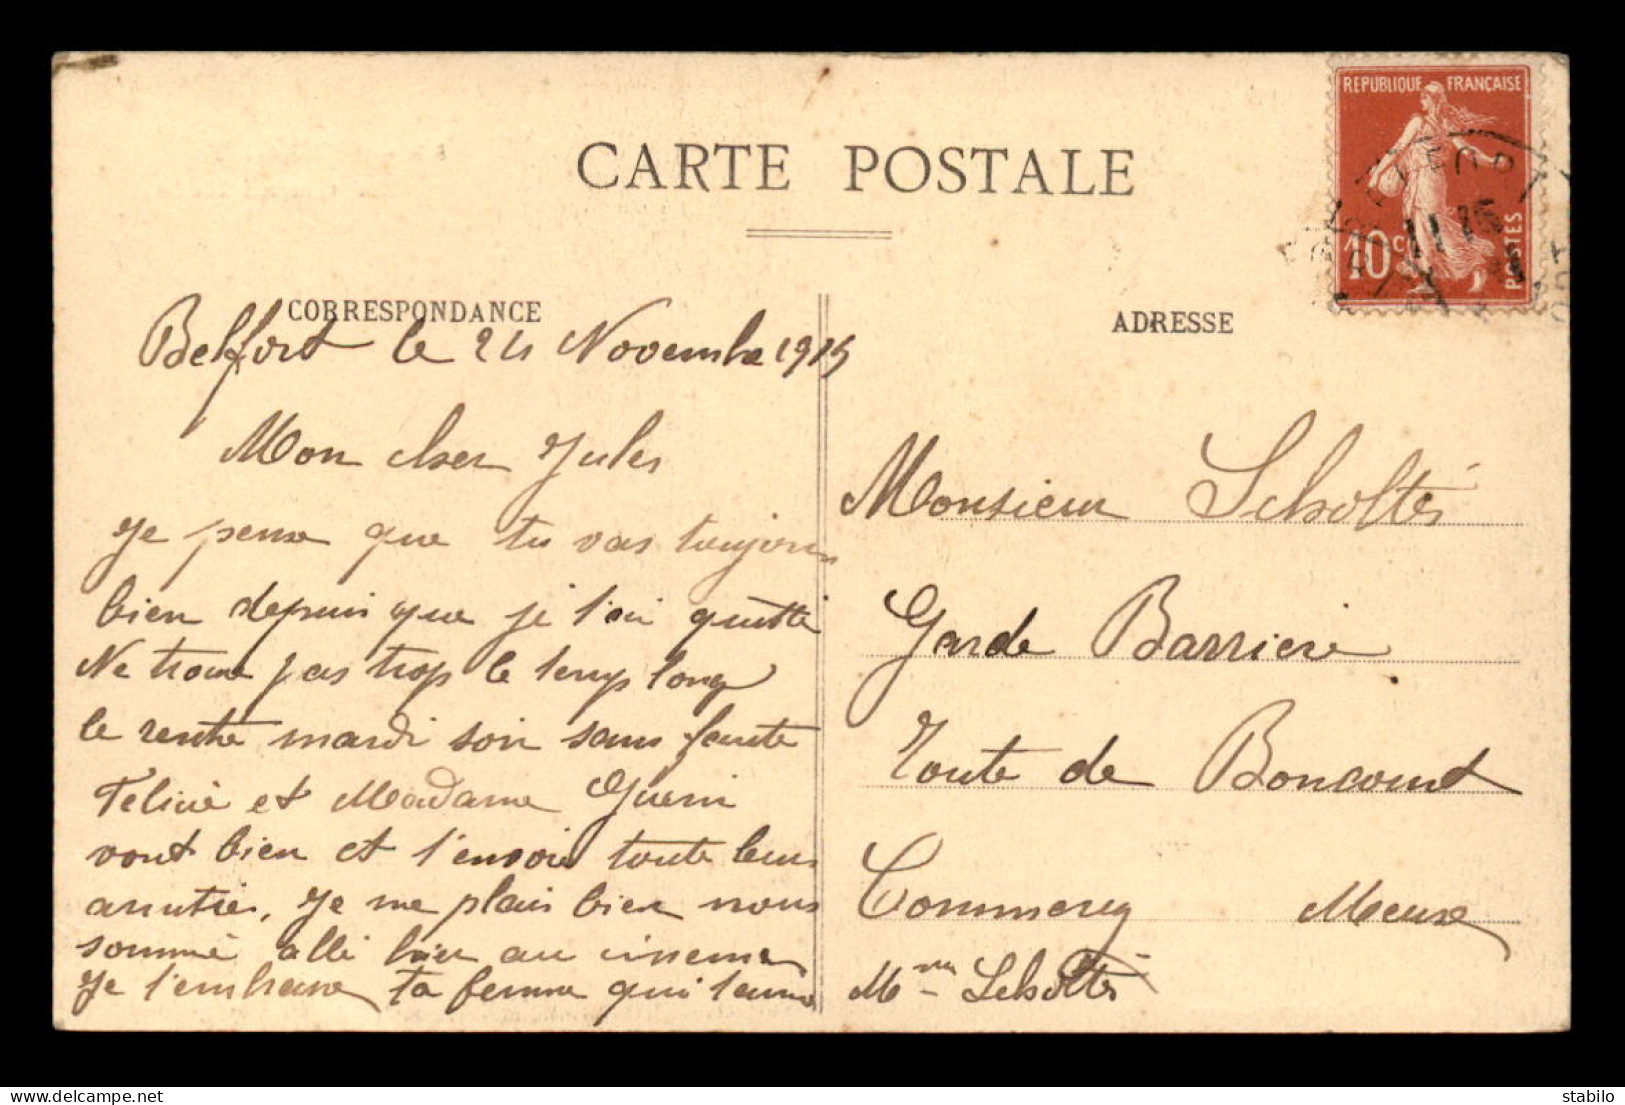 CARTE POSTALE
REPUBLIQUE FRANÇAISE
10c
POSTES
CORRESPONDANCE
Belfort le 24 Novembre 1915
Mon cher Jules
Je pense que tu vas toujours
bien depuis que je t'ai quitté
Ne trouve pas trop le temps long
Je rentre mardi soir sans faute
Felicie et Madame Guerin
vont bien et t'envoie toute leurs
amitiés, Je me plais bien nous
somme allé hier au cinema
Je t'embrasse, ta femme qui t'aime
Mme Scholtès
ADRESSE
Monsieur Scholtès
Garde Barriere
Route de Boncourt
Commercy Meuse
stabilo
delcampe.net